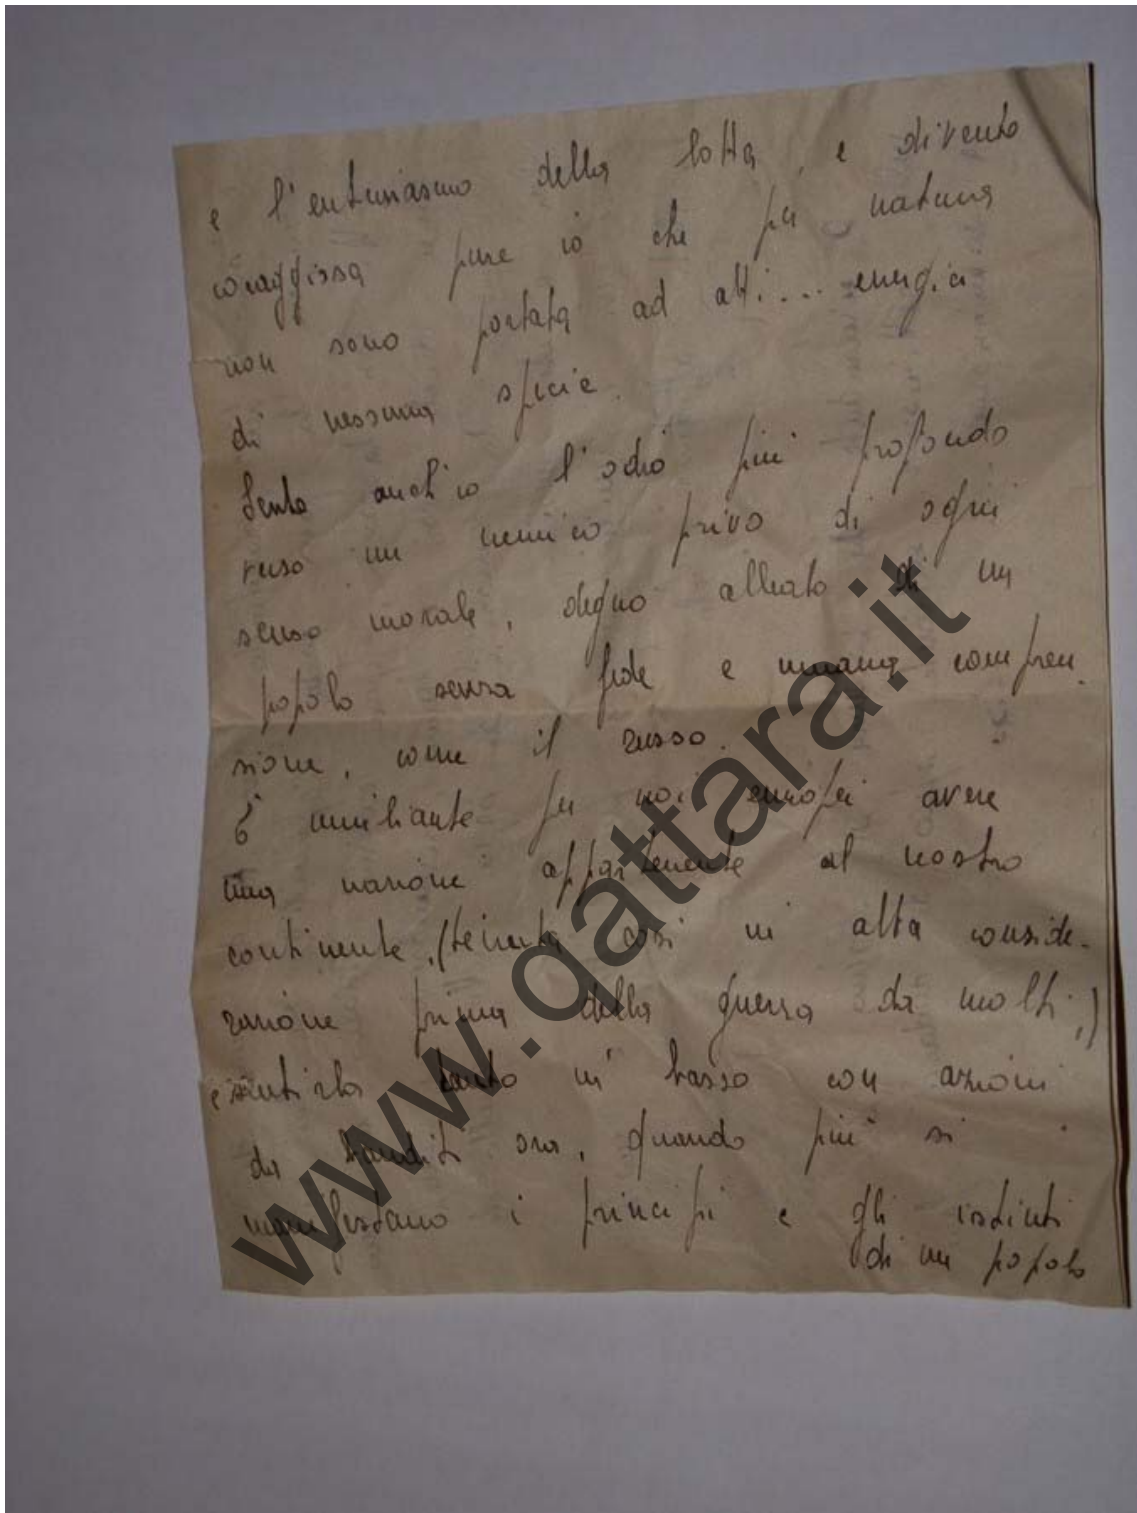 e l'entusiasmo della lotta, e divento
coraggiosa pure io che per natura
non sono portata ad atti.... energici
di nessuna specie.
Sento anch'io l'odio più profondo
verso un nemico privo di ogni
senso morale, degno alleato di un
popolo senza fede e umana compren.
sione, come il russo.
È umiliante per noi europei avere
una nazione appartenente al nostro
continente, (tenuta così in alta conside-
razione prima della guerra da molti,)
e sentirla tanto in basso con azioni
da banditi ora, quando più si
manifestano i principi e gli istinti
di un popolo
www.gattara.it